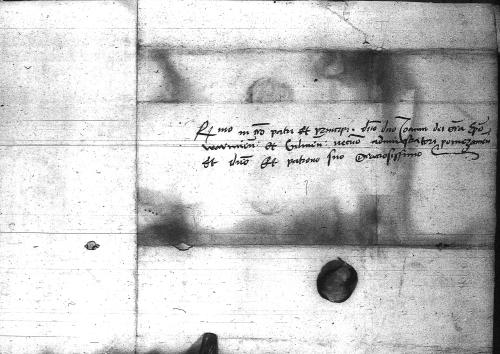 R mo in ... patri et principi dno dno Joanni dei gra Epo
warmien et Culmen necnon administratori pomezanien
et dno et patrono suo gratiosissimo